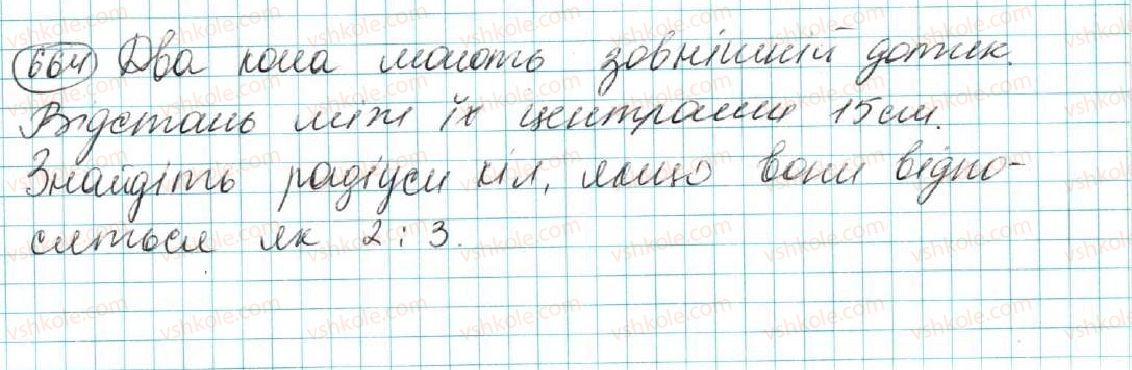 664 Два кола мають зовнішній дотик.
Відстань між їх центрами 15см.
Знайдіть радіуси кіл, якщо вони відно-
сяться як 2 : 3.